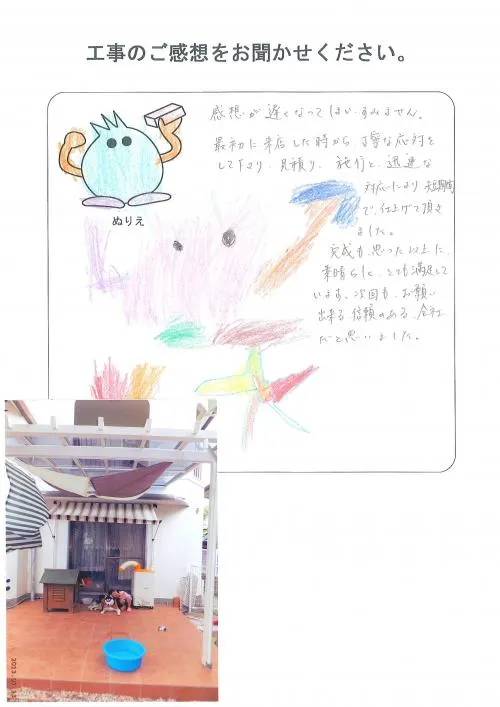 工事のご感想をお聞かせください。
感想が遅くなってしまい、すみません。
最初に来店した時から丁寧な応対を
して下さり、見積り、施行と、迅速な
対応により短期間
で、仕上げて頂き
ました。
完成も、思った以上に、
素晴らしく、とても満足して
います。次回も、お願い
出来る信頼のある会社
だと思いました。
ぬりえ